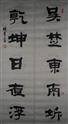 吴楚東南坼
乾坤日夜浮